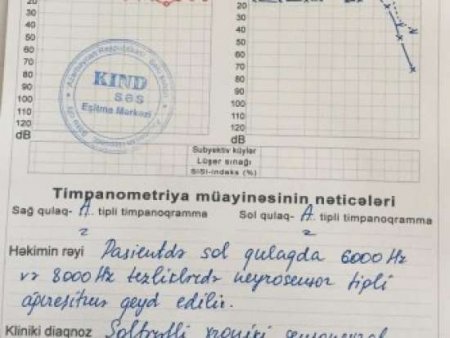 20
30
40
50
60
70
80
90
100
110
120
dB
20
30
40
50
60
70
80
90
100
110
120
dB
Azərbaycan Respublikası
KIND
səs
Eşitmə Mərkəzi
Subyektiv küylər
Lüşer sınağı
SISI-indeks (%)
Timpanometriya müayinəsinin nəticələri
Sağ qulaq- A tipli timpanoqramma Sol qulaq- A tipli timpanoqramma
Həkimin rəyi Pasientdə sol qulaqda 6000 Hz
və 8000 Hz tezliklərdə neyrosensor tipli
qeyd edilir.
Kliniki diaqnoz Soltərəfli xroniki